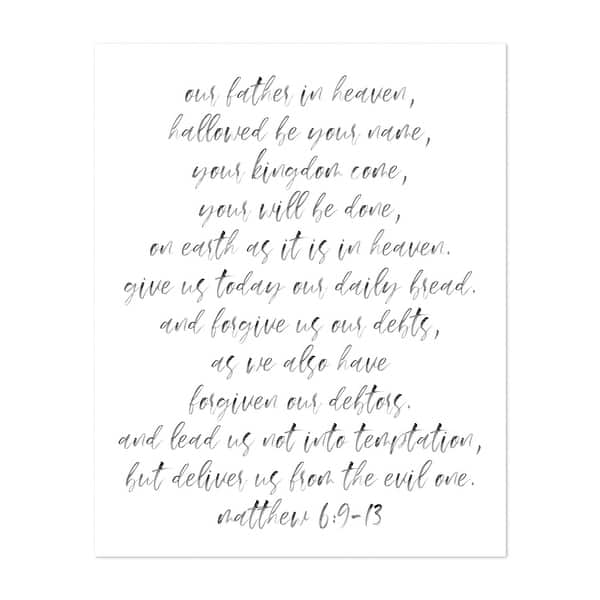 our father in heaven,
hallowed be your name,
your kingdom come,
your will be done,
on earth as it is in heaven.
give us today our daily bread.
and forgive us our debts,
as we also have
forgiven our debtors.
and lead us not into temptation,
but deliver us from the evil one.
matthew 6:9-13